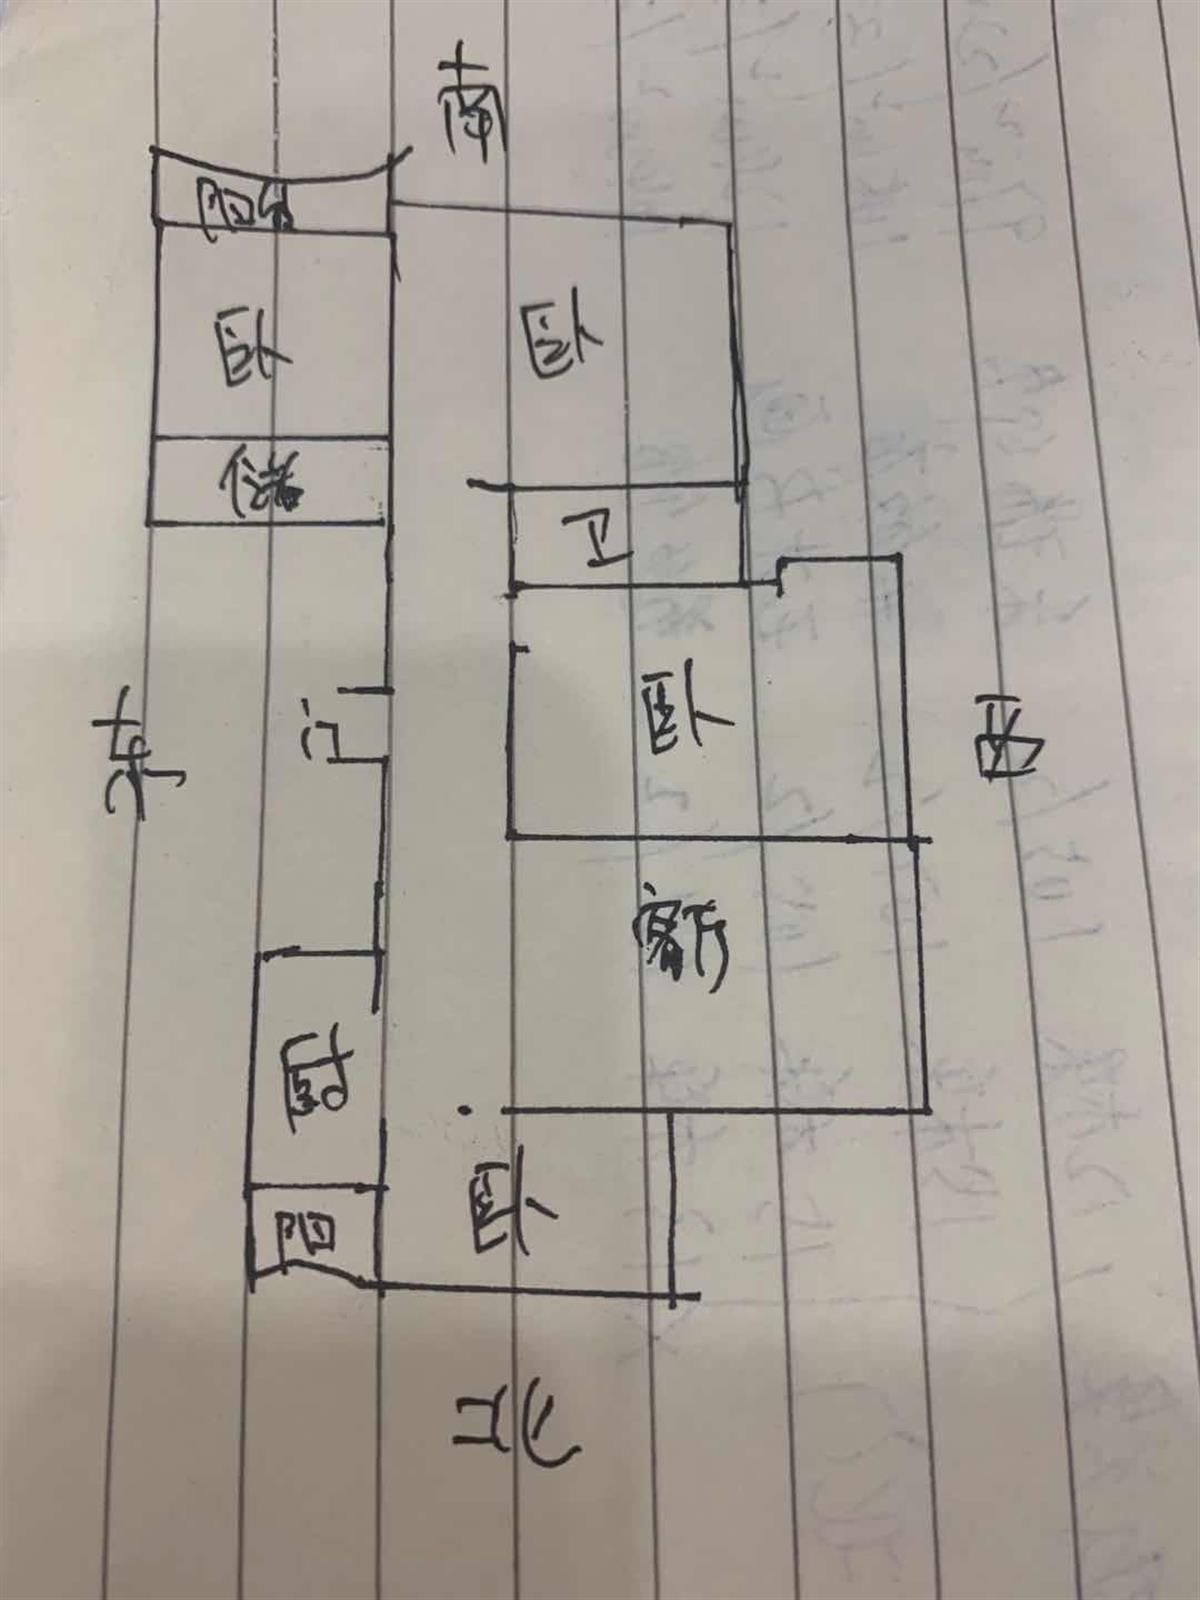 南
阳台
卧
卧
储
卫
东
门
卧
西
客厅
厨
卧
阳
北